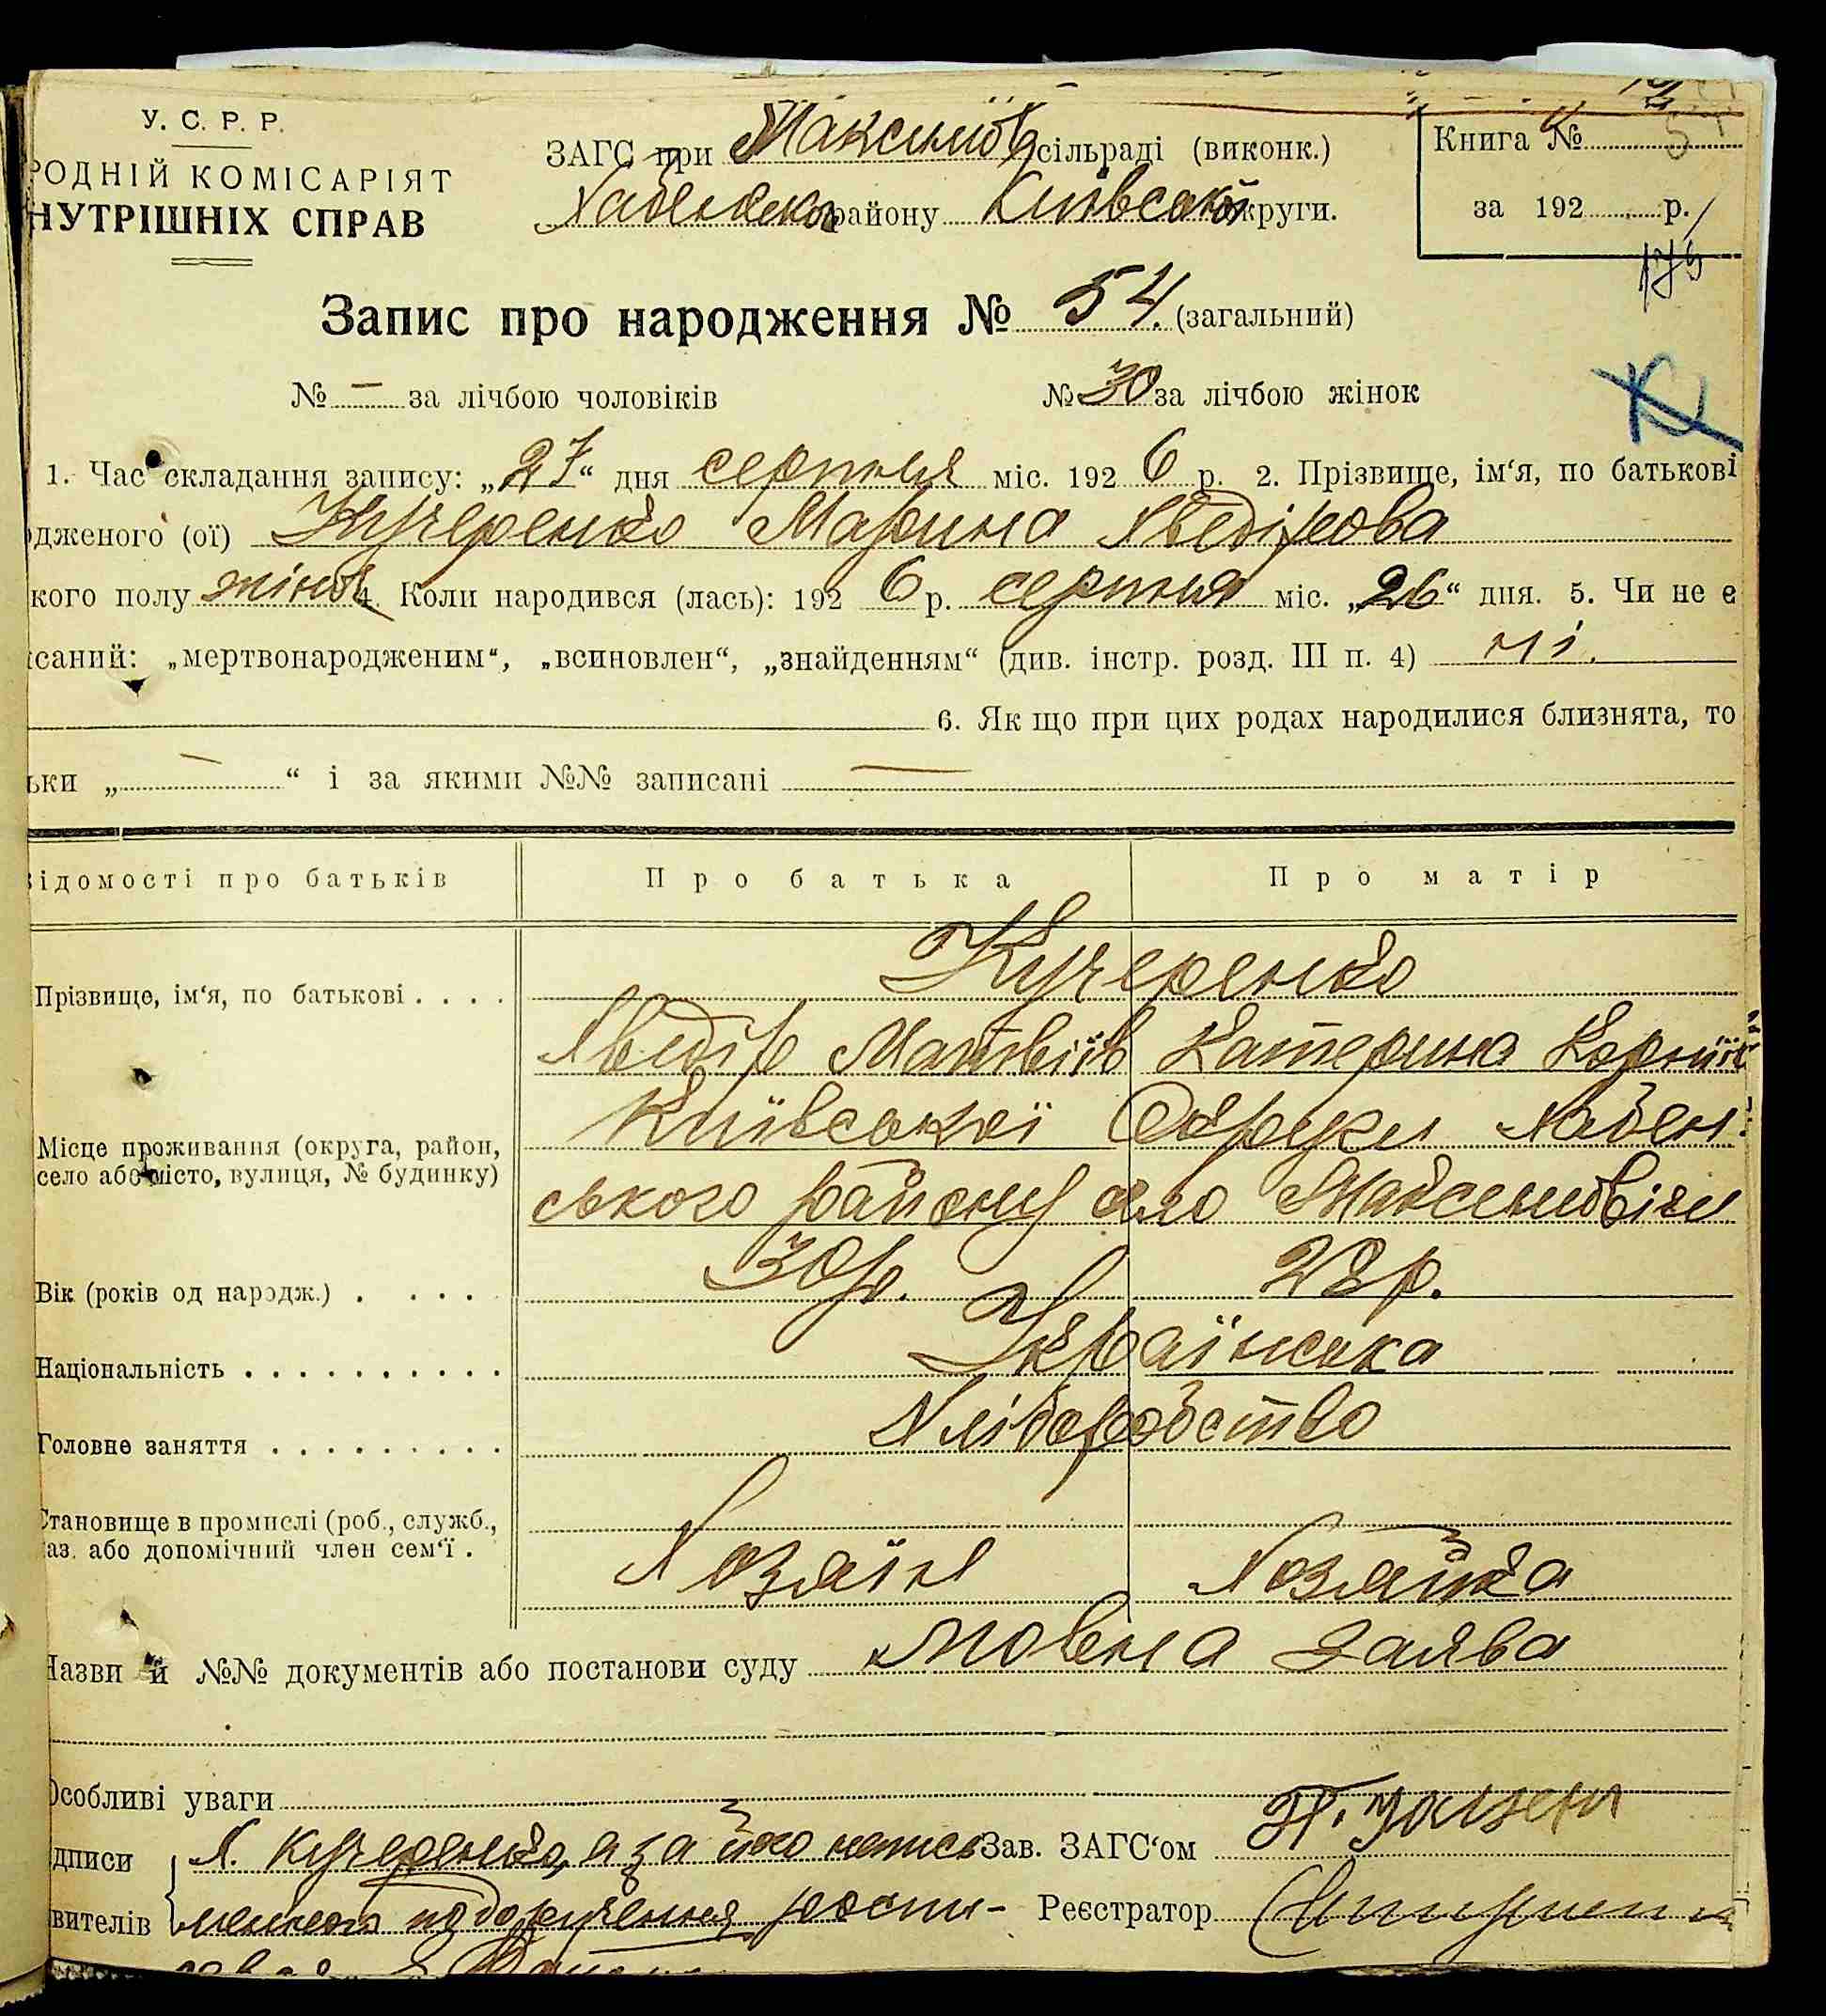 У. С. Р. Р.
РОДНІЙ КОМІСАРІЯТ
НУТРІШНІХ СПРАВ
ЗАГС при Максимов сільраді (виконк.)
Хабенском району Київської округи.
Книга №
за 192 р.
175
Запис про народження № 54. (загальний)
№ — за лічбою чоловіків
№ 30 за лічбою жінок
1. Час складання запису: „27“ дня серпня міс. 1926 р. 2. Прізвище, ім‘я, по батькові
дженого (ої) Кучеренко Марина Хведірова
кого полу жіноч 4. Коли народився (лась): 1926 р. серпня міс. „26“ дня. 5. Чи не є
исаний: „мертвонародженим“, „всиновлен“, „знайденням“ (див. інстр. розд. III п. 4) ні.
6. Як що при цих родах народилися близнята, то
ьки „—“ і за якими №№ записані —
відомості про батьків Про батька Про матір
Кучеренко
Прізвище, ім‘я, по батькові . . . .
Хведір Матвіїв Катерина Корніїв
Київської Округи Хабен-
Місце проживання (округа, район,
село або місто, вулиця, № будинку)
ського району село Максимовичи
Вік (років од народж.) . . . . . 30р. 28р.
Національність . . . . . . . . . . Українська
Головне заняття . . . . . . . . . Хліборобство
Становище в промислі (роб., служб.,
аз. або допомічний член сем‘ї .
Хозяїн Хозяйка
Назви й №№ документів або постанови суду мовна заява
Особливі уваги
дписи Х. Кучеренко, а за його непись Зав. ЗАГС‘ом
явителів менного по доручення роспи- Реєстратор